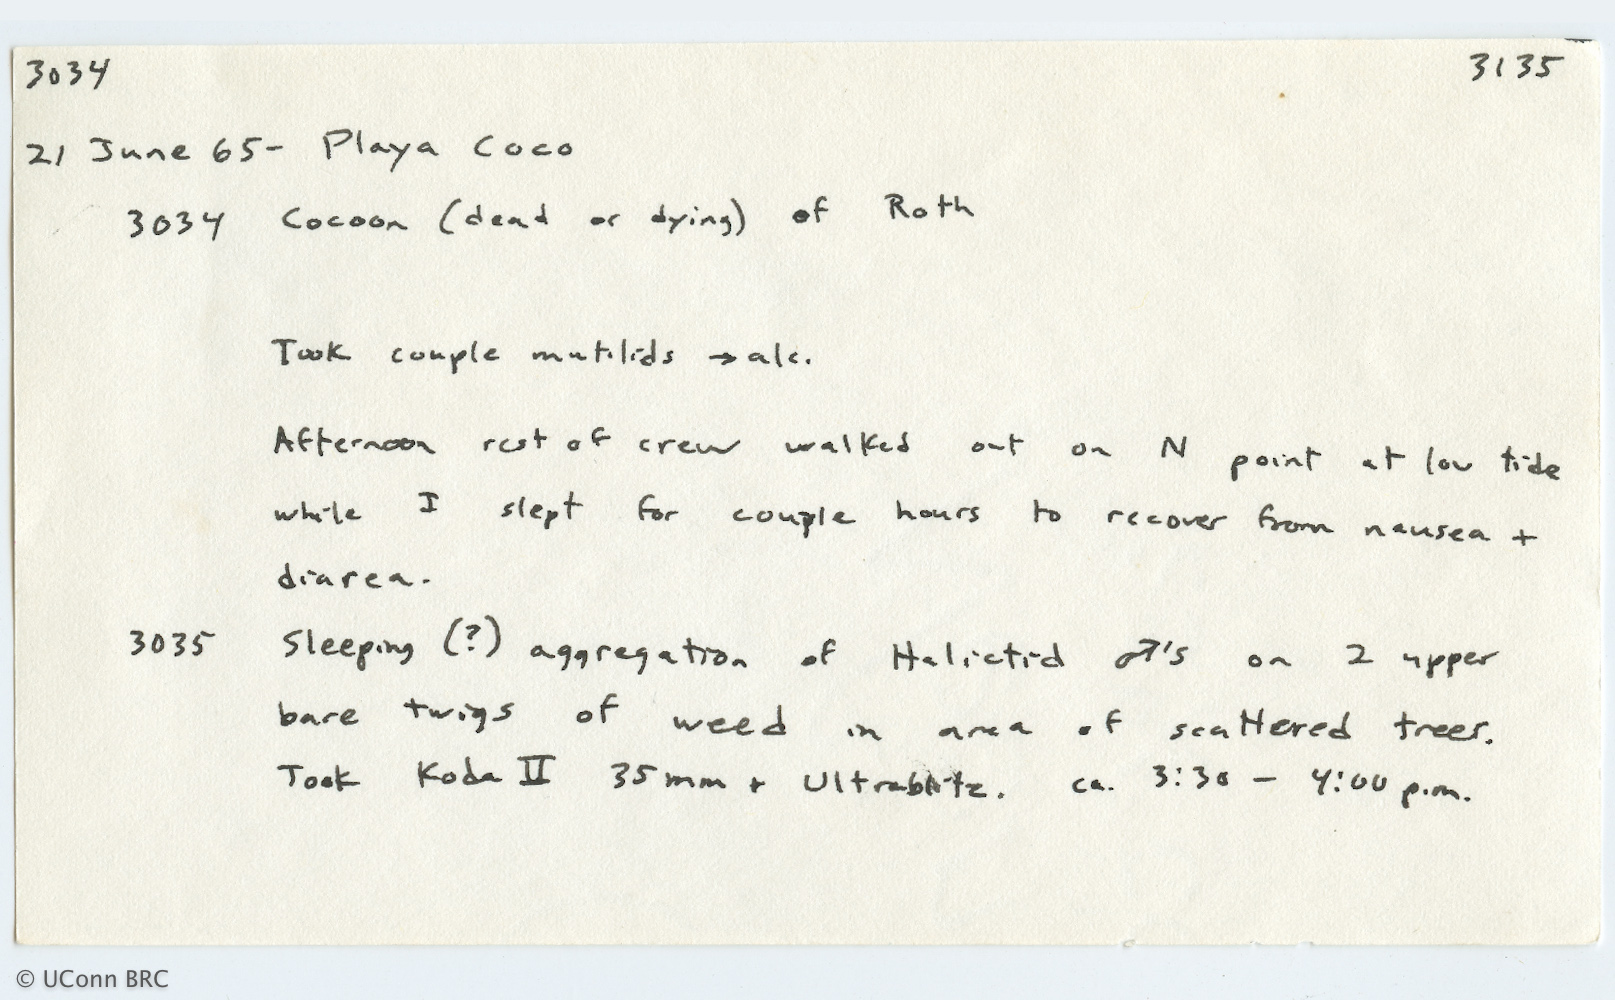 3034 3135
21 June 65- Playa Coco
3034 Cocoon (dead or dying) of Roth
Took couple mutilids → alc.
Afternoon rest of crew walked out on N point at low tide
while I slept for couple hours to recover from nausea +
diarea.
3035 Sleeping (?) aggregation of Halictid ♂'s on 2 upper
bare twigs of weed in area of scattered trees.
Took Koda II 35mm + Ultrablitz. ca. 3:30 - 4:00 p.m.
© UConn BRC